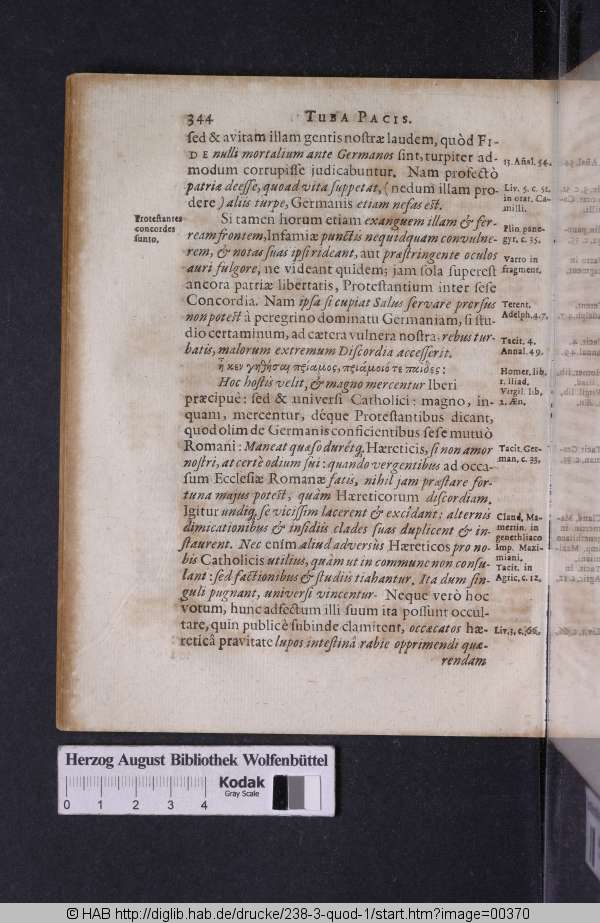 344 TUBA PACIS.
sed & avitam illam gentis nostræ laudem, quòd FI-
DE nulli mortalium ante Germanos sint, turpiter ad-
modum corrupisse judicabuntur. Nam profectò
patriæ deesse, quoad vita suppetat, (nedum illam pro-
dere) aliis turpe, Germanis etiam nefas est.
Si tamen horum etiam exanguem illam & fer-
ream frontem, Infamiæ punctis nequidquam convulne-
rem, & notas suas ipsi rideant, aut præstringente oculos
auri fulgore, ne videant quidem; jam sola superest
ancora patriæ libertatis, Protestantium inter sese
Concordia. Nam ipsa si cupiat Salus servare prorsus
non potest à peregrino dominatu Germaniam, si stu-
dio certaminum, ad cætera vulnera nostra, rebus tur-
batis, malorum extremum Discordia accesserit.
ἦ κεν γηθήσαι πρίαμος, πριάμοιό τε παῖδες:
Hoc hostis velit, & magno mercentur Iberi
præcipuè: sed & universi Catholici: magno, in-
quam, mercentur, déque Protestantibus dicant,
quod olim de Germanis conficientibus sese mutuò
Romani: Maneat quæso durétq; Hæreticis, si non amor
nostri, at certè odium sui: quando vergentibus ad occa-
sum Ecclesiæ Romanæ fatis, nihil jam præstare for-
tuna majus potest, quàm Hæreticorum discordiam.
Igitur undiq; se vicissim lacerent & excidant: alternis
dimicationibus & insidiis clades suas duplicent & in-
staurent. Nec enim aliud adversùs Hæreticos pro no-
bis Catholicis utilius, quàm ut in commune non consu-
lant: sed factionibus & studiis trahantur. Ita dum sin-
guli pugnant, universi vincentur. Neque verò hoc
votum, hunc adfectum illi suum ita possunt occul-
tare, quin publicè subinde clamitent, occæcatos hæ-
reticâ pravitate lupos intestinâ rabie opprimendi quæ-
rendam
Protestantes
concordes
sunto.
13. Añal. 54.
Liv. 5. c. 51.
in orat. Ca-
milli.
Plin. pane-
gyr. c. 35.
Varro in
fragment.
Terent.
Adelph. 4.7.
Tacit. 4.
Annal. 49.
Homer. lib.
1. Iliad.
Virgil. lib.
2. Æn.
Tacit. Ger-
man. c. 33.
Claud. Ma-
mertin. in
genethliaco
Imp. Maxi-
miani.
Tacit. in
Agric. c. 12.
Liv. 3. c. 66.
Herzog August Bibliothek Wolfenbüttel
Kodak
Gray Scale
0 1 2 3 4
© HAB http://diglib.hab.de/drucke/238-3-quod-1/start.htm?image=00370